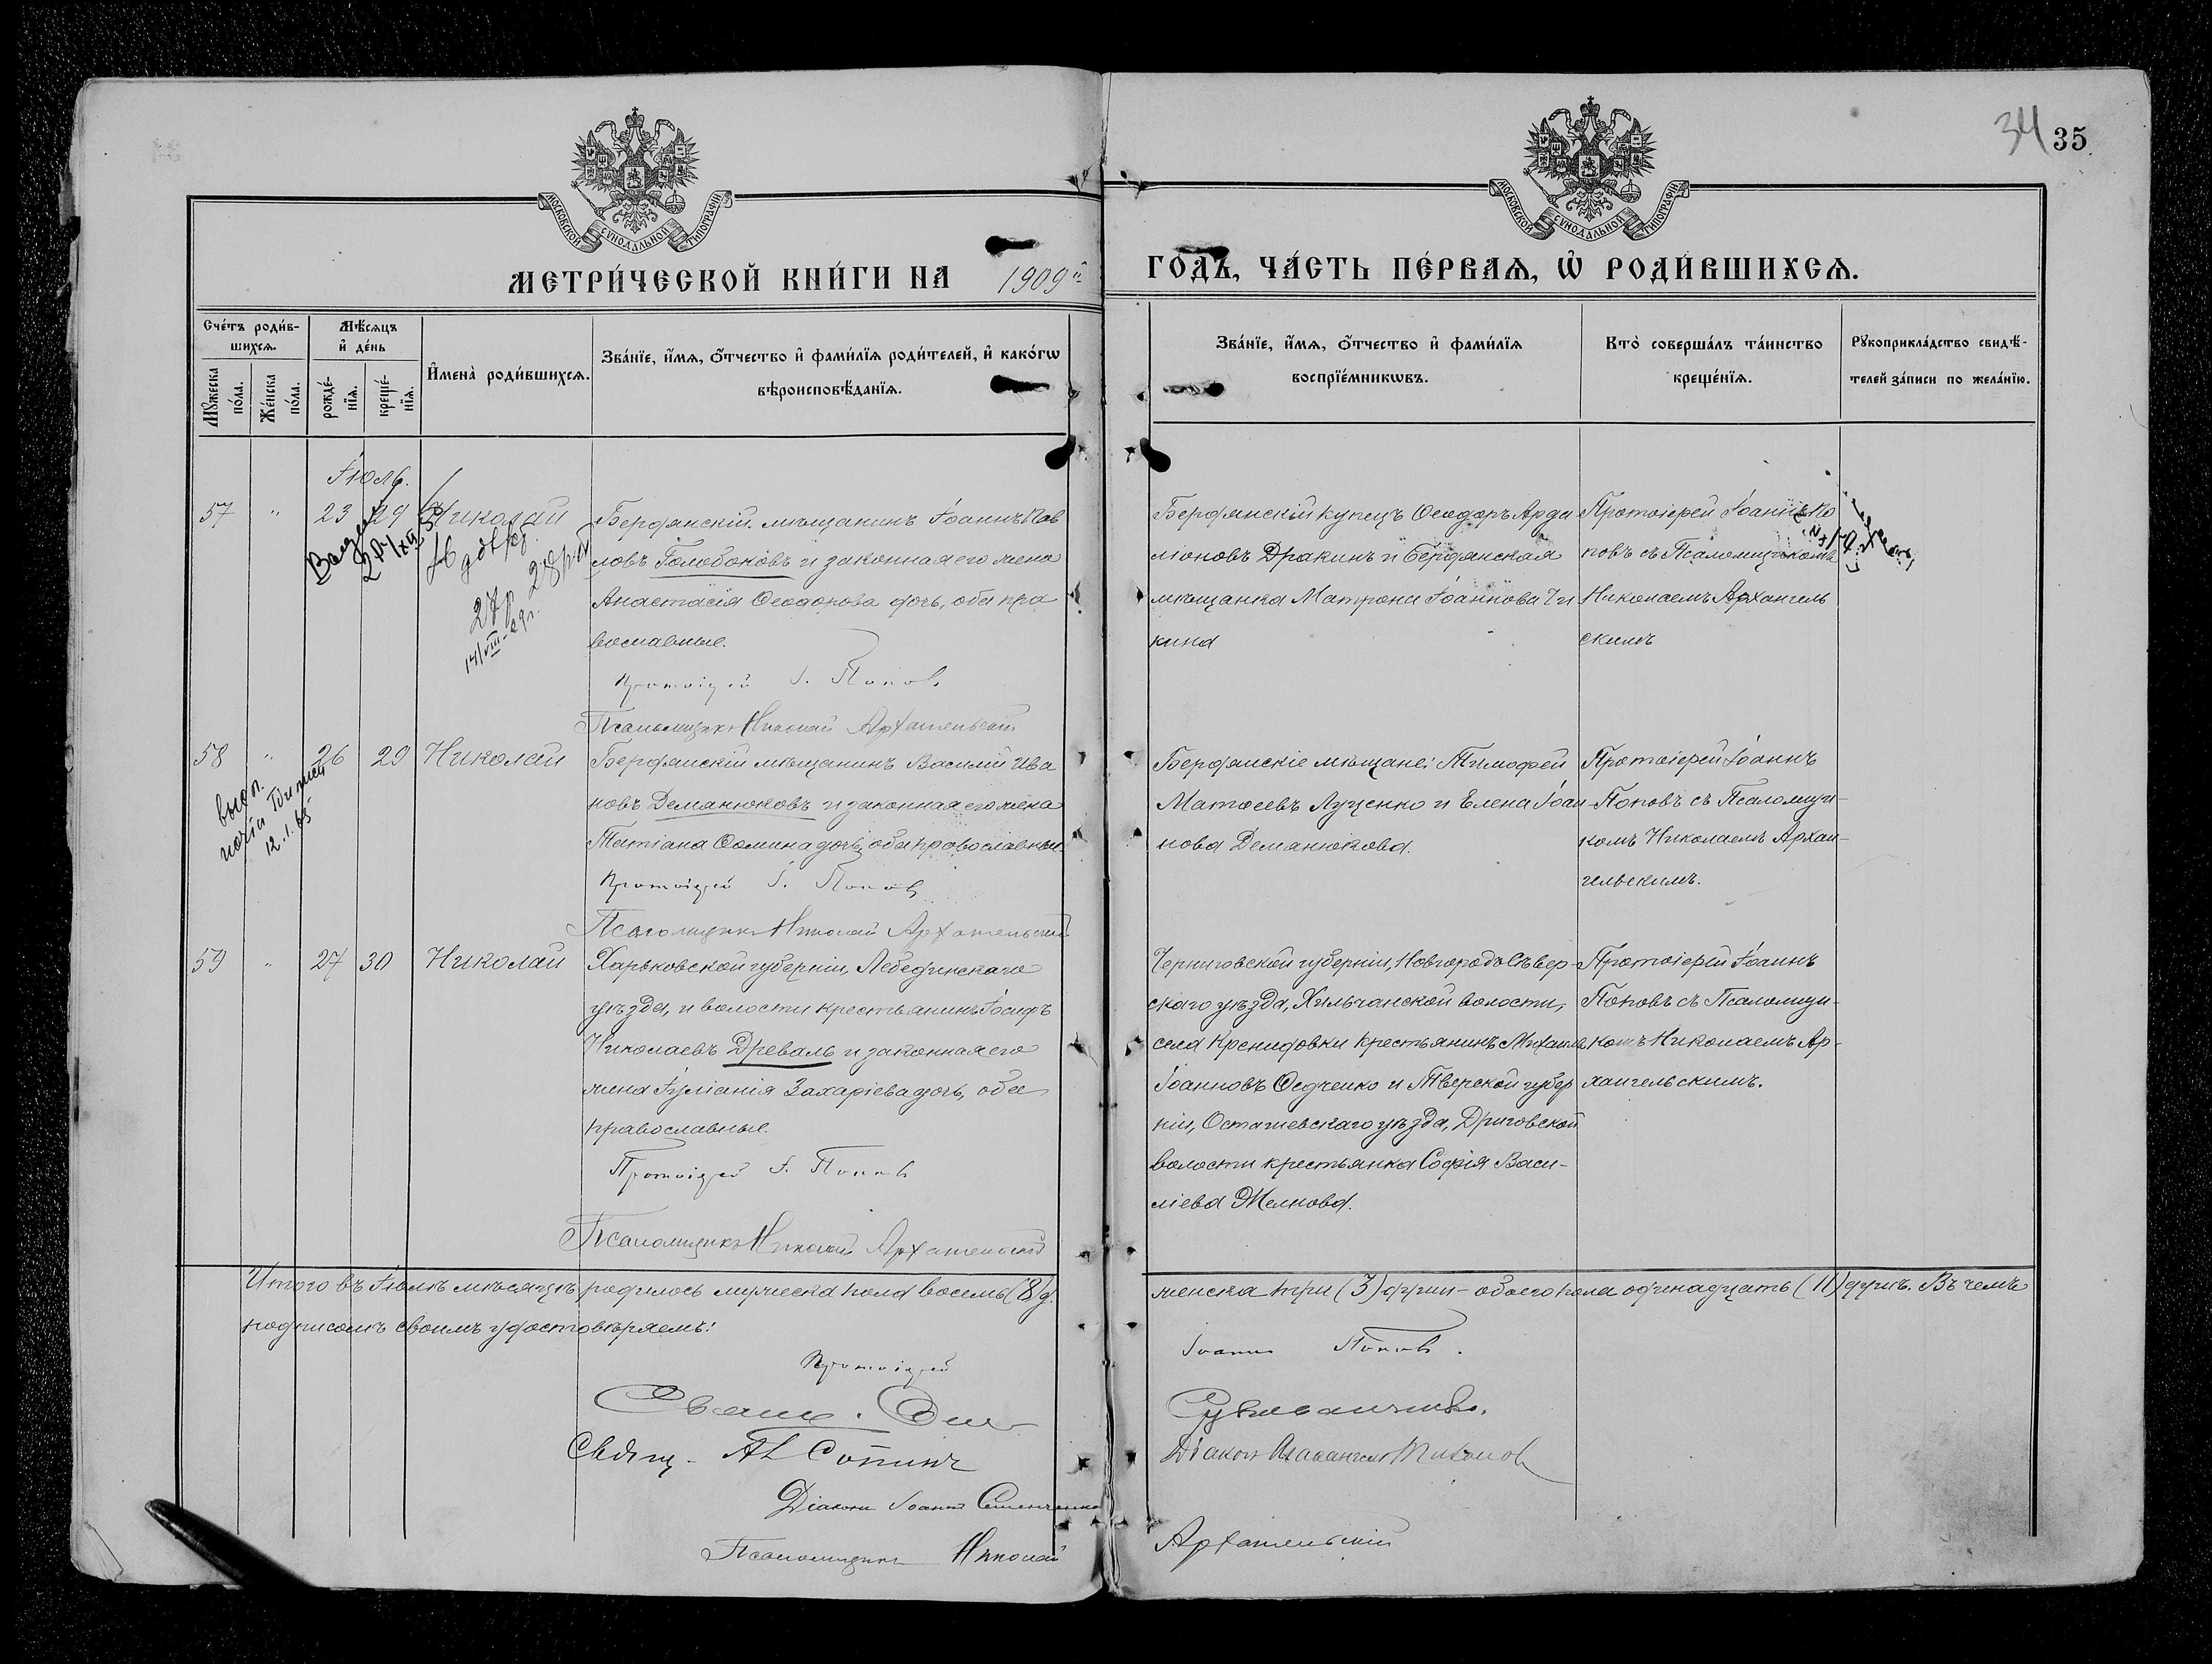 МОСКОВСКОЙ СУНОДАЛЬНОЙ ТИПОГРАФІИ
МОСКОВСКОЙ СУНОДАЛЬНОЙ ТИПОГРАФІИ
34 35
МЕТРИ́ЧЕСКОЙ КНИ́ГИ НА 1909й ГО́ДЪ, ЧА́СТЬ ПЕ́РВАѦ, Ѡ҆ РОДИ́ВШИХСѦ.
Сче́тъ роди́в-
шихсѧ.
Мꙋ́жеска
по́ла.
Же́нска
по́ла.
Мѣ́сѧцъ
и҆ де́нь
рожде́-
нїѧ.
креще́-
нїѧ.
И҆мена̀ роди́вшихсѧ.
Зва́нїе, и҆́мѧ, ѻ҆́тчество и҆ фами́лїѧ роди́телей, и҆ како́гѡ
вѣроисповѣ́данїѧ.
Зва́нїе, и҆́мѧ, ѻ҆́тчество и҆ фами́лїѧ
воспрїе́мникѡвъ.
Кто̀ соверша́лъ та́инство
креще́нїѧ.
Рꙋкоприкла́дство свидѣ́-
телей за́писи по жела́нїю.
Іюль.
57 " 23 29 Николай
Бердянскій мѣщанинъ Іоаннъ Пав
ловъ Голобоковъ и законная его жена
Анастасія Ѳеодорова дочь, оба пра
вославные.
Протоіерей І. Поповъ
Псаломщикъ Николай Архангельскій
14/VIII-29г.
Бердянскій купецъ Ѳеодоръ Арда
ліоновъ Дракинъ и бердянская
мѣщанка Матрона Іоаннова Чи
кина
Протоіерей Іоаннъ По
повъ съ Псаломщикомъ
Николаемъ Архангель
скимъ
58 " 26 29 Николай
12.1.65
Бердянскій мѣщанинъ Василій Ива
новъ Деманюковъ и законная его жена
Татіана Ѳомина дочь, оба православные.
Протоіерей І. Поповъ
Псаломщикъ Николай Архангельскій
Бердянскіе мѣщане: Тимофей
Матѳеевъ Луценко и Елена Іоан-
нова Деманюкова.
Протоіерей Іоаннъ
Поповъ съ Псаломщи-
комъ Николаемъ Архан-
гельскимъ.
59 " 27 30 Николай
Харьковской губерніи, Лебединскаго
уѣзда, и волости крестьянинъ Іосифъ
Николаевъ Древаль и законная его
жена Іуліанія Захаріева дочь, оба
православные.
Протоіерей І. Поповъ
Псаломщикъ Николай Архангельскій
Черниговской губерніи, Новгородъ Сѣвер-
скаго уѣзда, Хильчанской волости,
села Кренидовки крестьянинъ Михаилъ
Іоанновъ Ѳедченко и Тверской губер
ніи, Осташевскаго уѣзда, Дриговской
волости крестьянка Софія Васи-
ліева Желнова.
Протоіерей Іоаннъ
Поповъ съ Псаломщи-
комъ Николаемъ Ар-
хангельскимъ.
Итого въ Іюлѣ мѣсяцѣ родилось мужеска пола восемь (8) д. женска три (3) души - обоего пола одинадцать (11) душъ. Въ чемъ
подписомъ своимъ удостовѣряемъ:
Протоіерей Іоаннъ Поповъ.
Свящ.
Свящ. Ал.
Діаконъ
Діаконъ Іоаннъ
Псаломщикъ Николай Архангельскій